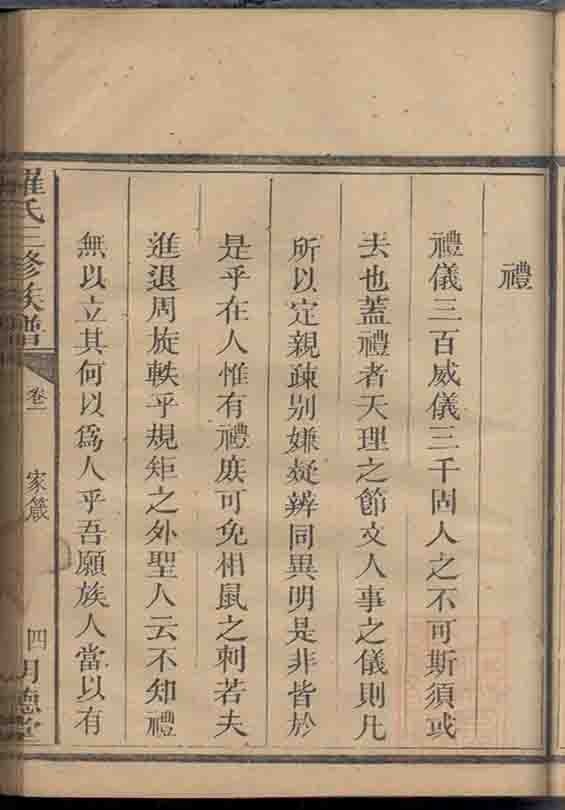 禮
禮儀三百威儀三千固人之不可斯須或
去也蓋禮者天理之節文人事之儀則凡
所以定親疎别嫌疑辨同異明是非皆於
是乎在人惟有禮庻可免相鼠之刺若夫
進退周旋軼乎規矩之外聖人云不知禮
無以立其何以爲人乎吾願族人當以有
羅氏三修族譜 卷一 家箴 四 明德堂